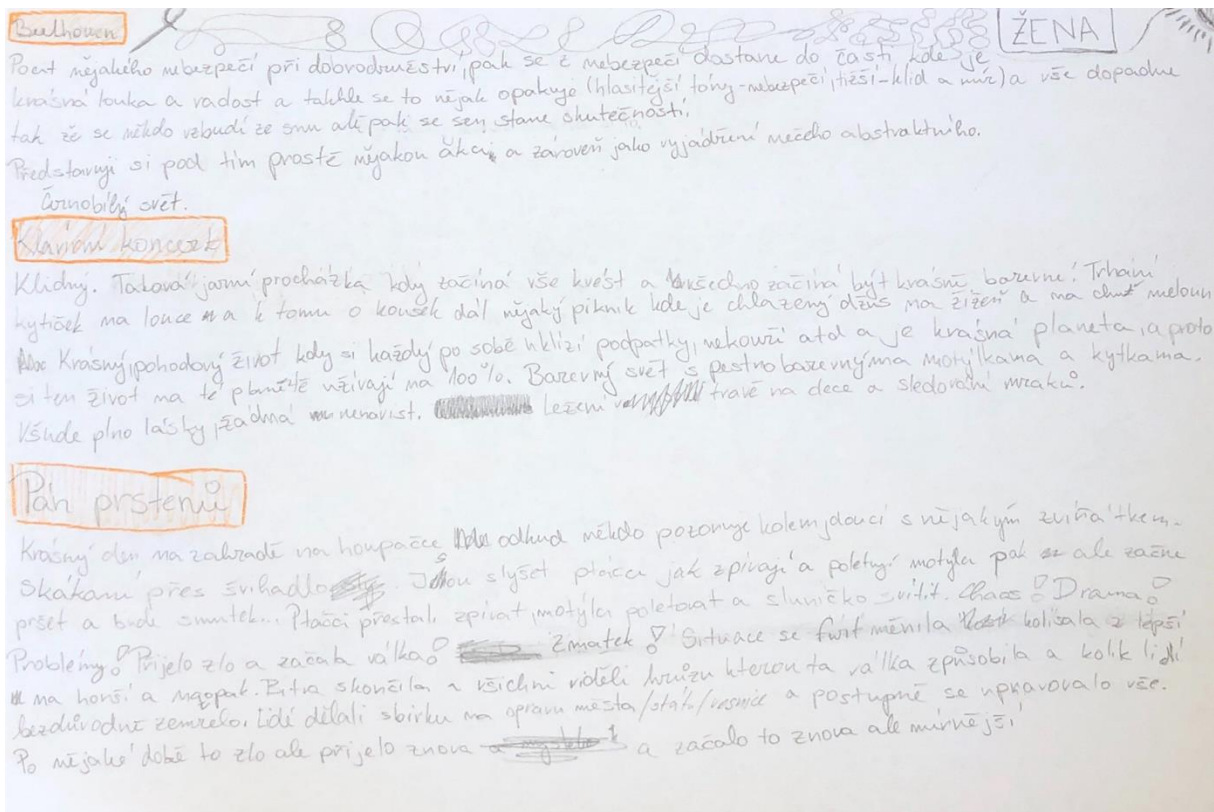 Beethoven
ŽENA
Pocit nějakého nebezpečí při dobrodružství, pak se z nebezpečí dostane do části kde je
krásná louka a radost a takhle se to nějak opakuje (hlasitější tóny-nebezpečí, tišší-klid a mír) a vše dopadne
tak že se někdo vzbudí ze snu ale pak se sen stane skutečností.
Představuji si pod tím prostě nějakou akci, a zároveň jako vyjádření něčeho abstraktního.
Černobílý svět.
Klavírní koncert
Klidný. Taková jarní procházka kdy začíná vše kvést a všechno začíná být krásně barevné! Trhání
kytiček na louce a k tomu o kousek dál nějaký piknik kde je chlazený džus na žízeň a na chuť meloun
Krásný, pohodový život kdy si každý po sobě uklízí podpatky, nekouří atd a je krásná planeta, a proto
si ten život na té planětě užívají na 100%. Barevný svět s pestrobarevnýma motýlkama a kytkama.
Všude plno lásky, žádná nenávist. Ležení v trávě na dece a sledování mraků.
Pán prstenů
Krásný den na zahradě na houpačce odkud někdo pozoruje kolemjdoucí s nějakým zvířátkem.
Skákání přes švihadlo. Jsou slyšet ptáčci jak zpívají a poletují motýli pak ale začne
pršet a bude smutek... Ptáčci přestali zpívat, motýli poletovat a sluníčko svítit. Chaos! Drama!
Problémy! Přijelo zlo a začala válka! Zmatek! Situace se furt měnila kolísala z lepší
na horší a naopak. Bitva skončila a všichni viděli hrůzu kterou ta válka způsobila a kolik lidí
bezdůvodně zemřelo. Lidé dělali sbírku na opravu města/státu/vesnice a postupně se upravovalo vše.
Po nějaké době to zlo ale přijelo znova a začalo to znova ale mírnější